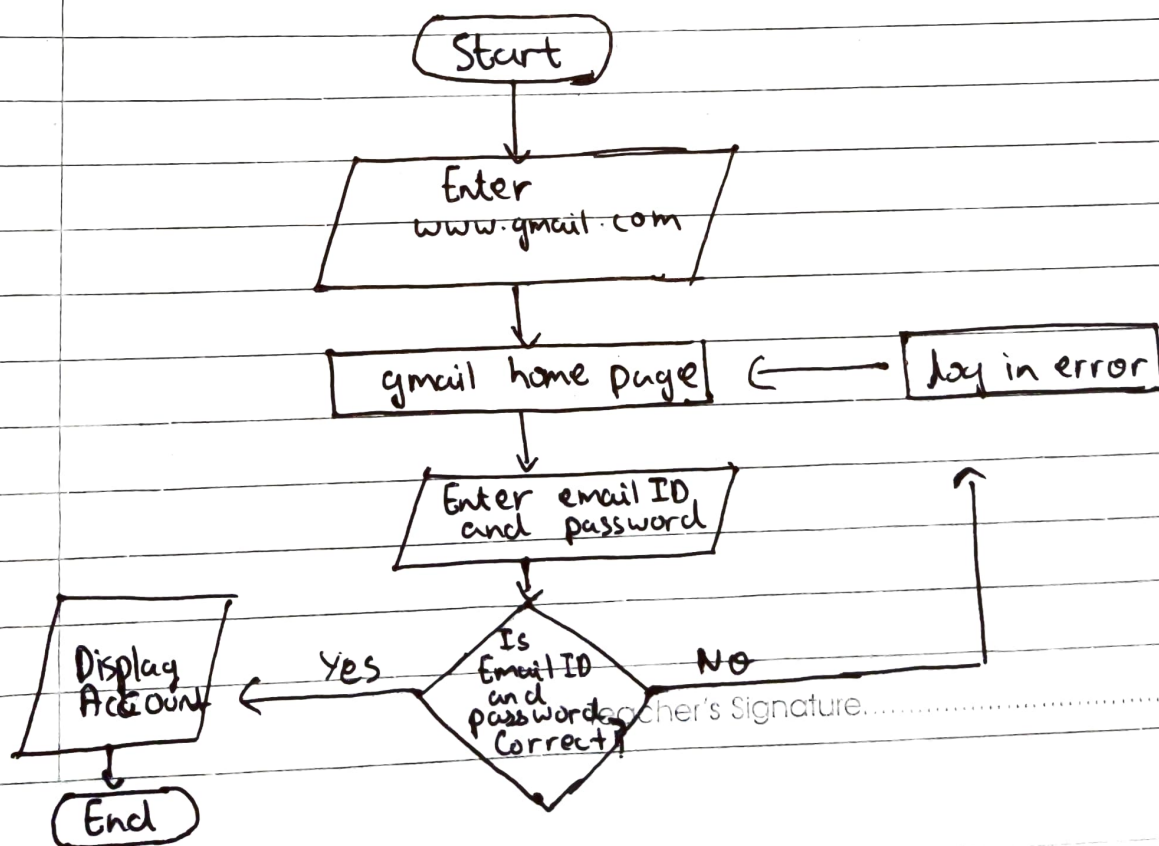 Start
Enter
www.gmail.com
gmail home page
log in error
Enter email ID
and password
Is
Email ID
and
password
Correct?
Yes
No
Display
Account
Teacher's Signature
End